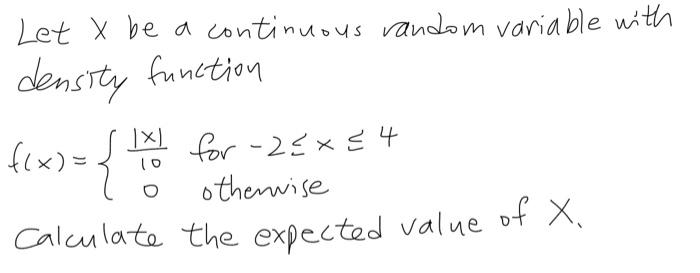 Let X be a continuous random variable with
density function
f(x) = { |x|/10 for -2 ≤ x ≤ 4
0 otherwise
Calculate the expected value of X.